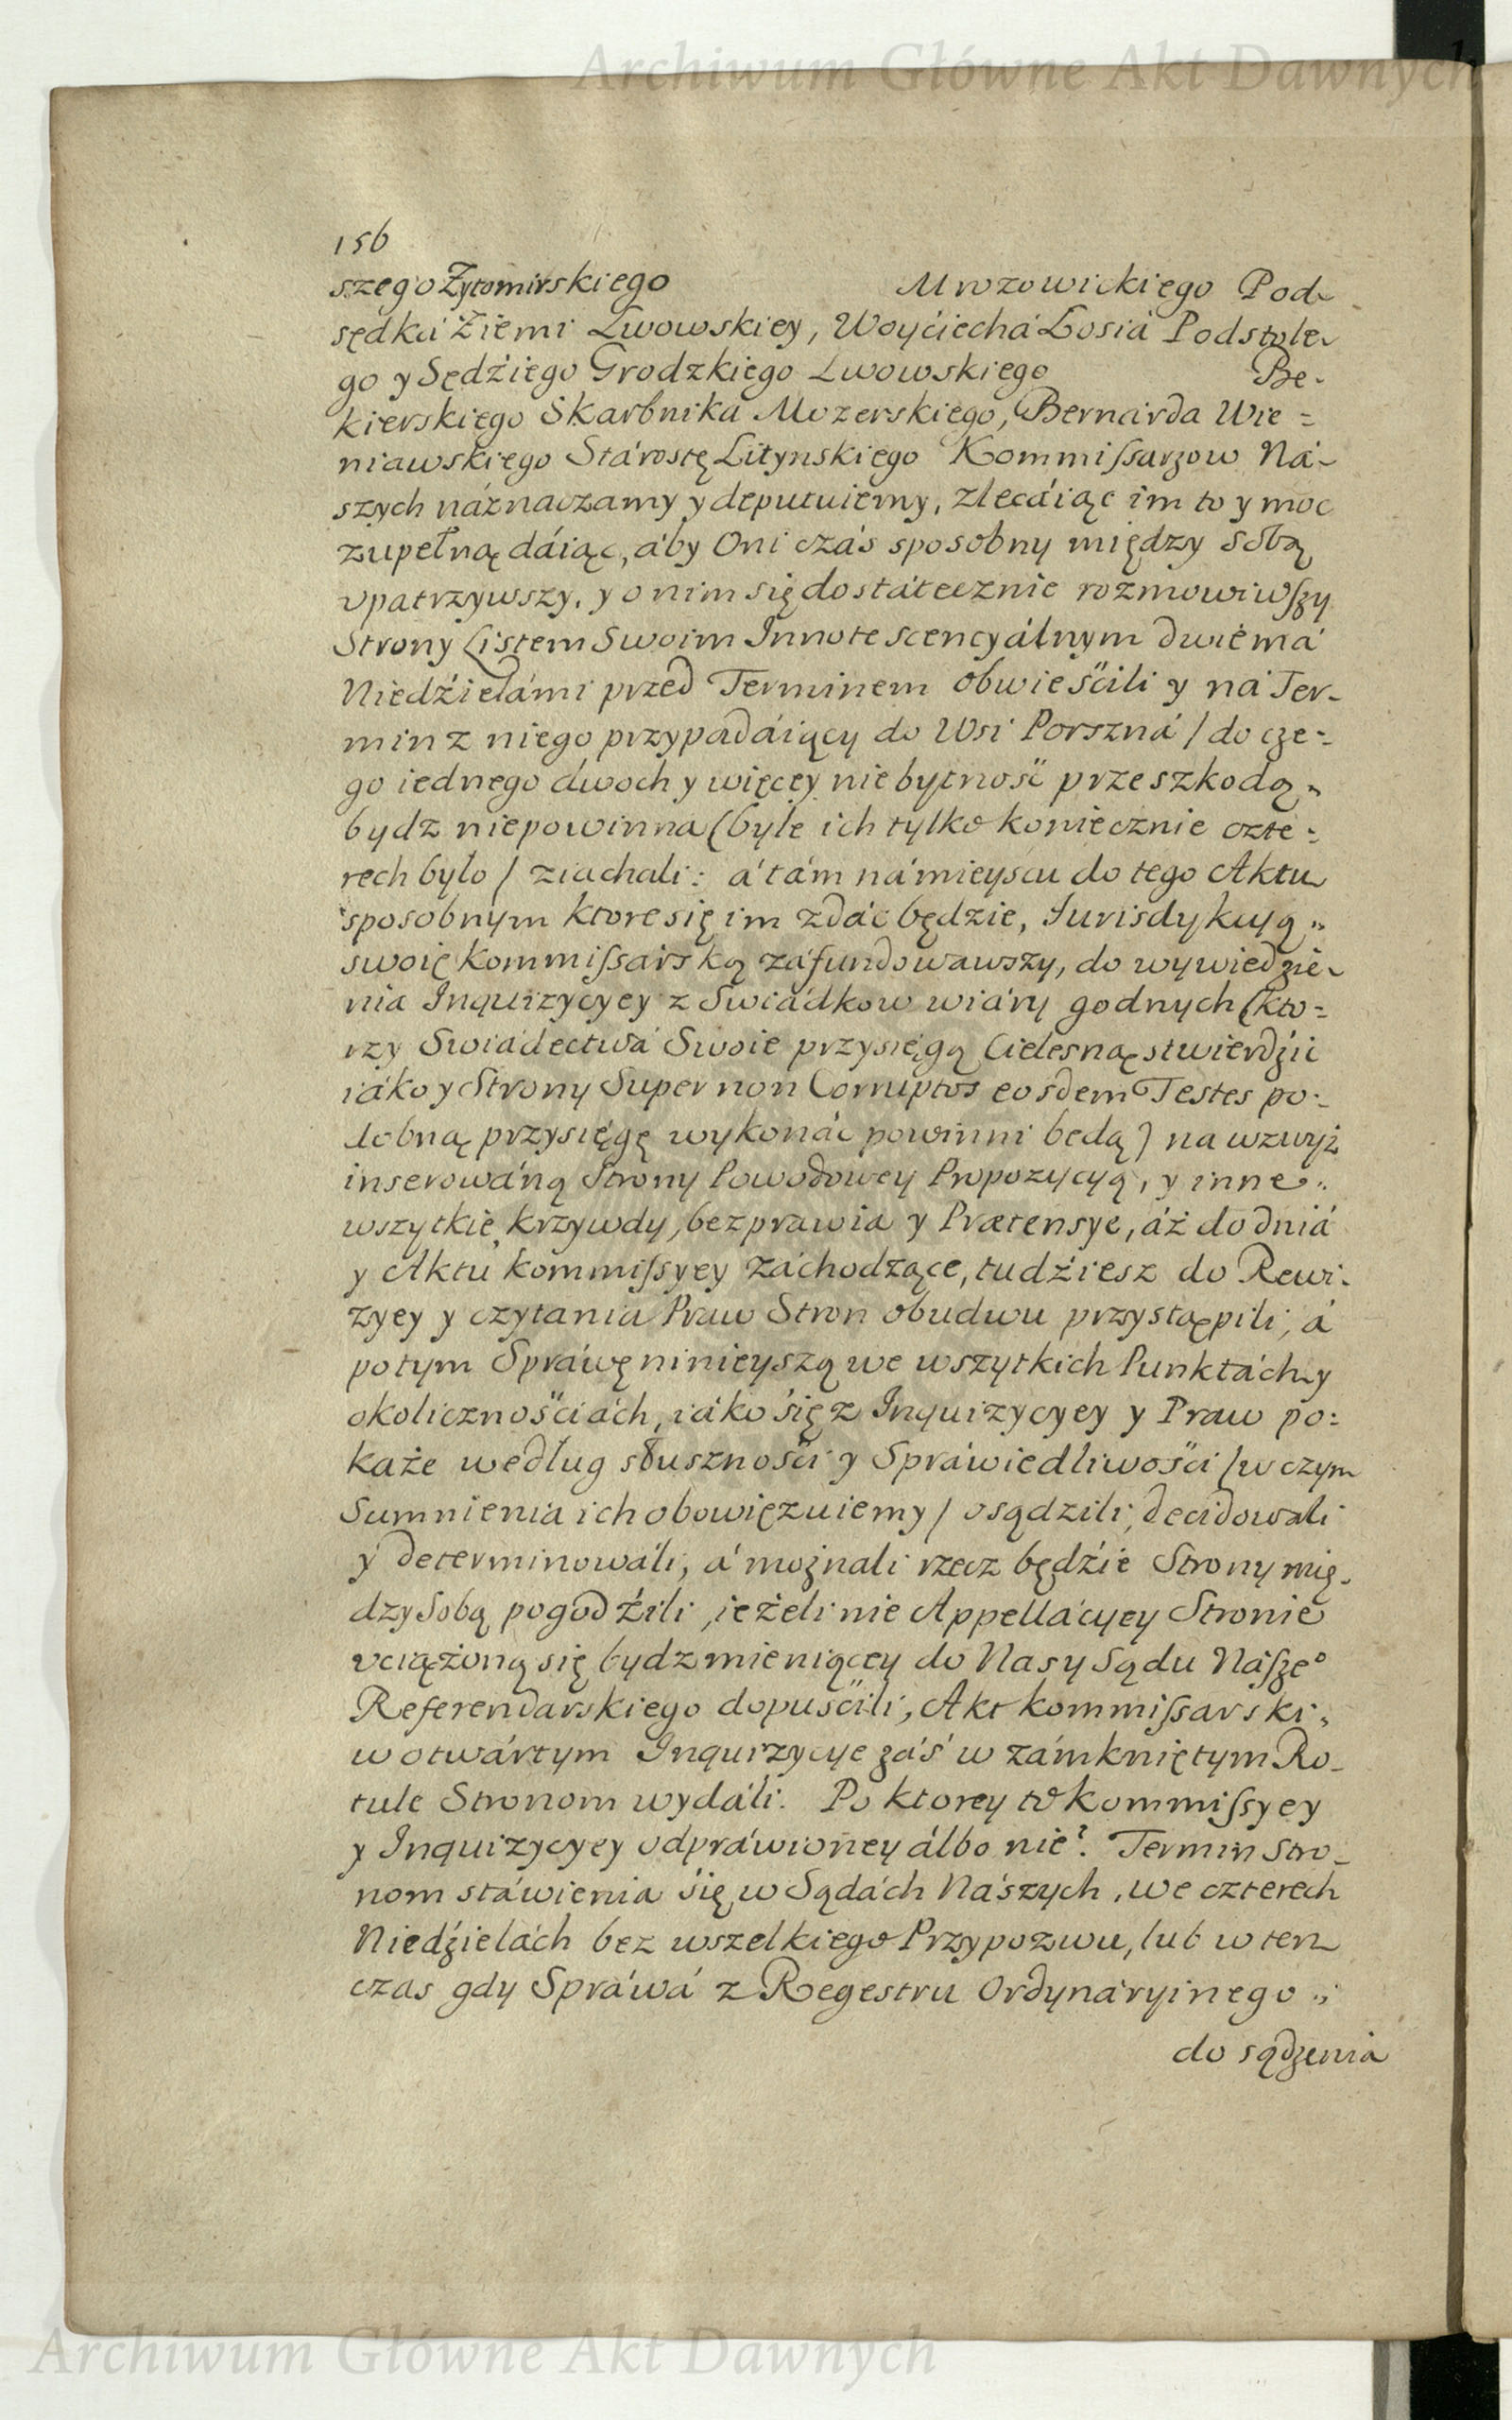 Archiwum Główne Akt Dawnych
156
szego Zytomirskiego Mrozowickiego Pod-
sędka Ziemi Lwowskiey, Woyćiechá Łosiá Podstole-
go y Sędźiego Grodzkiego Lwowskiego Be-
kierskiego Skarbnika Mozerskiego, Bernárda Wie=
niawskiego Stárostę Litynskiego Kommissarzow Ná-
szych náznaczamy y deputuiemy, zlecáiąc im to y moc
zupełną dáiąc, áby Oni czás sposobny między sobą
vpatrzywszy, y o nim się dostátecznie rozmowiwszy
Strony Listem Swoim Innotescencyálnym dwiemá
Niedźielámi przed Terminem obwieśćili y ná Ter-
min z niego przypadáiący do Wsi Porszná / do cze=
go iednego dwoch y więcey niebytność przeszkodą
bydz niepowinna (byle ich tylko koniecznie czte=
rech było / ziachali: á tám ná mieyscu do tego Aktu
sposobnym ktore się im zdáć będzie, Jurisdykcyą
swoię Kommissarską záfundowawszy, do wywiedzie-
nia Inquizycyey z Swiádkow wiáry godnych (kto=
rzy Swiádectwá Swoie przysięgą Cielesną stwierdźić
iáko y Strony Super non Corruptos eosdem Testes po-
dobną przysięgę wykonáć powinni będą) na wzwyż
inserowáną Strony Powodowey Propozycyą, y inne
wszytkie krzywdy, bezprawia y Prætensye, áż do dniá
y Aktu kommissyey záchodzące, tudźiesz do Rewi-
zyey y czytania Praw Stron obudwu przystąpili, á
potym Spráwę ninieyszą we wszytkich Punktách y
okolicznośćiách, iáko się z Inquizycyey y Praw po=
każe według słusznośći y Spráwiedliwośći / w czym
Sumnienia ich obowięzuiemy / osądzili, decidowali
y determinowáli, á możnali rzecz będźie Strony mię-
dzy Sobą pogodźili, ieżeli nie Appellácyey Stronie
vciążoną się bydz mieniącey do Nas y Sądu Nászeº
Referendarskiego dopuśćili, Akt kommissarski
w otwártym Inquizycye záś w zámkniętym Ro-
tule Stronom wydáli. Po ktorey to Kommissyey
y Inquizycyey odpráwioney álbo nie? Termin Stro-
nom stáwienia się w Sądách Nászych, we czterech
Niedźielách bez wszelkiego Przypozwu, lub w ten
czas gdy Spráwá z Regestru Ordynáryinego
do sądzenia
Archiwum Główne Akt Dawnych